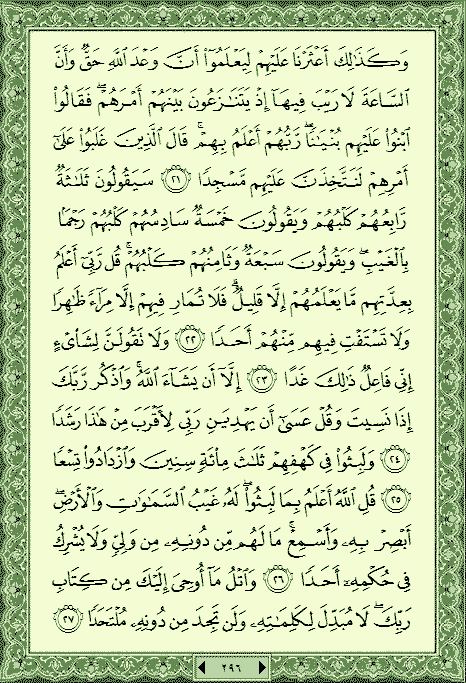 وَكَذَٰلِكَ أَعْثَرْنَا عَلَيْهِمْ لِيَعْلَمُوٓا۟ أَنَّ وَعْدَ ٱللَّهِ حَقٌّ وَأَنَّ
ٱلسَّاعَةَ لَا رَيْبَ فِيهَآ إِذْ يَتَنَٰزَعُونَ بَيْنَهُمْ أَمْرَهُمْ ۖ فَقَالُوا۟
ٱبْنُوا۟ عَلَيْهِم بُنْيَٰنًا ۖ رَّبُّهُمْ أَعْلَمُ بِهِمْ ۚ قَالَ ٱلَّذِينَ غَلَبُوا۟ عَلَىٰٓ
أَمْرِهِمْ لَنَتَّخِذَنَّ عَلَيْهِم مَّسْجِدًا ﴿٢١﴾ سَيَقُولُونَ ثَلَٰثَةٌ
رَّابِعُهُمْ كَلْبُهُمْ وَيَقُولُونَ خَمْسَةٌ سَادِسُهُمْ كَلْبُهُمْ رَجْمًۢا
بِٱلْغَيْبِ ۖ وَيَقُولُونَ سَبْعَةٌ وَثَامِنُهُمْ كَلْبُهُمْ ۚ قُل رَّبِّىٓ أَعْلَمُ
بِعِدَّتِهِم مَّا يَعْلَمُهُمْ إِلَّا قَلِيلٌ ۗ فَلَا تُمَارِ فِيهِمْ إِلَّا مِرَآءً ظَٰهِرًا
وَلَا تَسْتَفْتِ فِيهِم مِّنْهُمْ أَحَدًا ﴿٢٢﴾ وَلَا تَقُولَنَّ لِشَا۟ىْءٍ
إِنِّى فَاعِلٌ ذَٰلِكَ غَدًا ﴿٢٣﴾ إِلَّآ أَن يَشَآءَ ٱللَّهُ ۚ وَٱذْكُر رَّبَّكَ
إِذَا نَسِيتَ وَقُلْ عَسَىٰٓ أَن يَهْدِيَنِ رَبِّى لِأَقْرَبَ مِنْ هَٰذَا رَشَدًا
﴿٢٤﴾ وَلَبِثُوا۟ فِى كَهْفِهِمْ ثَلَٰثَ مِا۟ئَةٍ سِنِينَ وَٱزْدَادُوا۟ تِسْعًا
﴿٢٥﴾ قُلِ ٱللَّهُ أَعْلَمُ بِمَا لَبِثُوا۟ ۖ لَهُۥ غَيْبُ ٱلسَّمَٰوَٰتِ وَٱلْأَرْضِ ۖ
أَبْصِرْ بِهِۦ وَأَسْمِعْ ۚ مَا لَهُم مِّن دُونِهِۦ مِن وَلِىٍّ وَلَا يُشْرِكُ
فِى حُكْمِهِۦٓ أَحَدًا ﴿٢٦﴾ وَٱتْلُ مَآ أُوحِىَ إِلَيْكَ مِن كِتَابِ
رَبِّكَ ۖ لَا مُبَدِّلَ لِكَلِمَٰتِهِۦ وَلَن تَجِدَ مِن دُونِهِۦ مُلْتَحَدًا ﴿٢٧﴾
٢٩٦